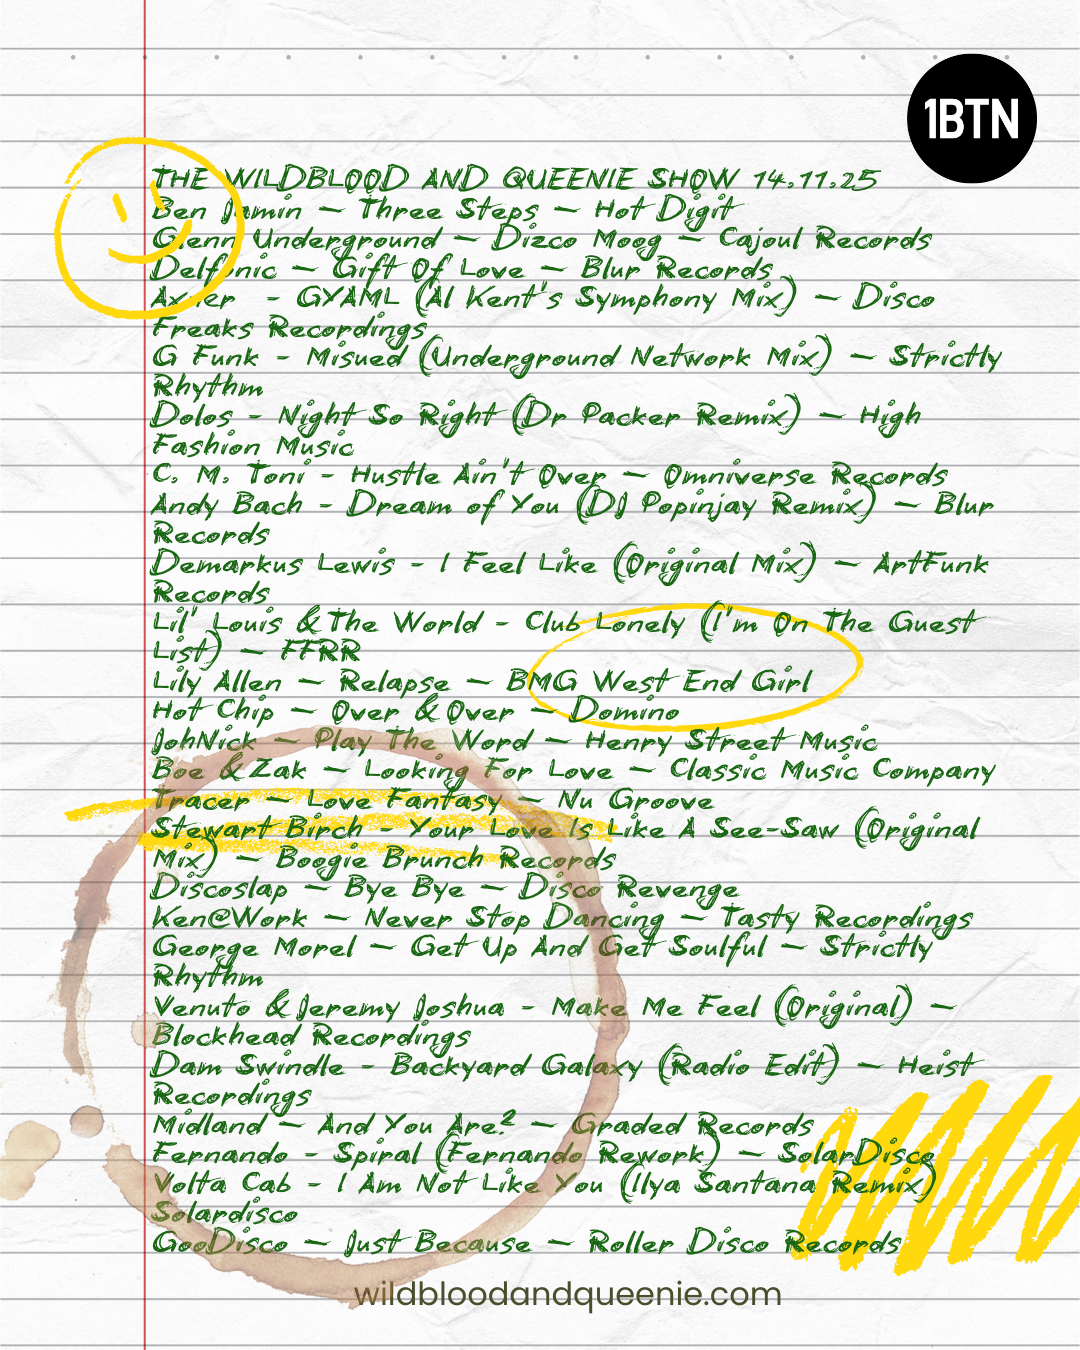 1BTN
THE WILDBLOOD AND QUEENIE SHOW 14.11.25
Ben Jamin – Three Steps – Hot Digit
Glenn Underground – Dizco Moog – Cajoul Records
Delfonic – Gift Of Love – Blur Records
Axier - GYAML (Al Kent's Symphony Mix) – Disco
Freaks Recordings
G Funk - Misued (Underground Network Mix) – Strictly
Rhythm
Dolos - Night So Right (Dr Packer Remix) – High
Fashion Music
C. M. Toni - Hustle Ain't Over – Omniverse Records
Andy Bach - Dream of You (DJ Popinjay Remix) – Blur
Records
Demarkus Lewis - I Feel Like (Original Mix) – ArtFunk
Records
Lil' Louis & The World - Club Lonely (I'm On The Guest
List) – FFRR
Lily Allen – Relapse – BMG West End Girl
Hot Chip – Over & Over – Domino
JohNick – Play The Word – Henry Street Music
Boe & Zak – Looking For Love – Classic Music Company
Tracer – Love Fantasy – Nu Groove
Stewart Birch - Your Love Is Like A See-Saw (Original
Mix) – Boogie Brunch Records
Discoslap – Bye Bye – Disco Revenge
Ken@Work – Never Stop Dancing – Tasty Recordings
George Morel – Get Up And Get Soulful – Strictly
Rhythm
Venuto & Jeremy Joshua - Make Me Feel (Original) –
Blockhead Recordings
Dam Swindle - Backyard Galaxy (Radio Edit) – Heist
Recordings
Midland – And You Are? – Graded Records
Fernando - Spiral (Fernando Rework) – SolarDisco
Volta Cab - I Am Not Like You (Ilya Santana Remix)
Solardisco
GooDisco – Just Because – Roller Disco Records
wildbloodandqueenie.com